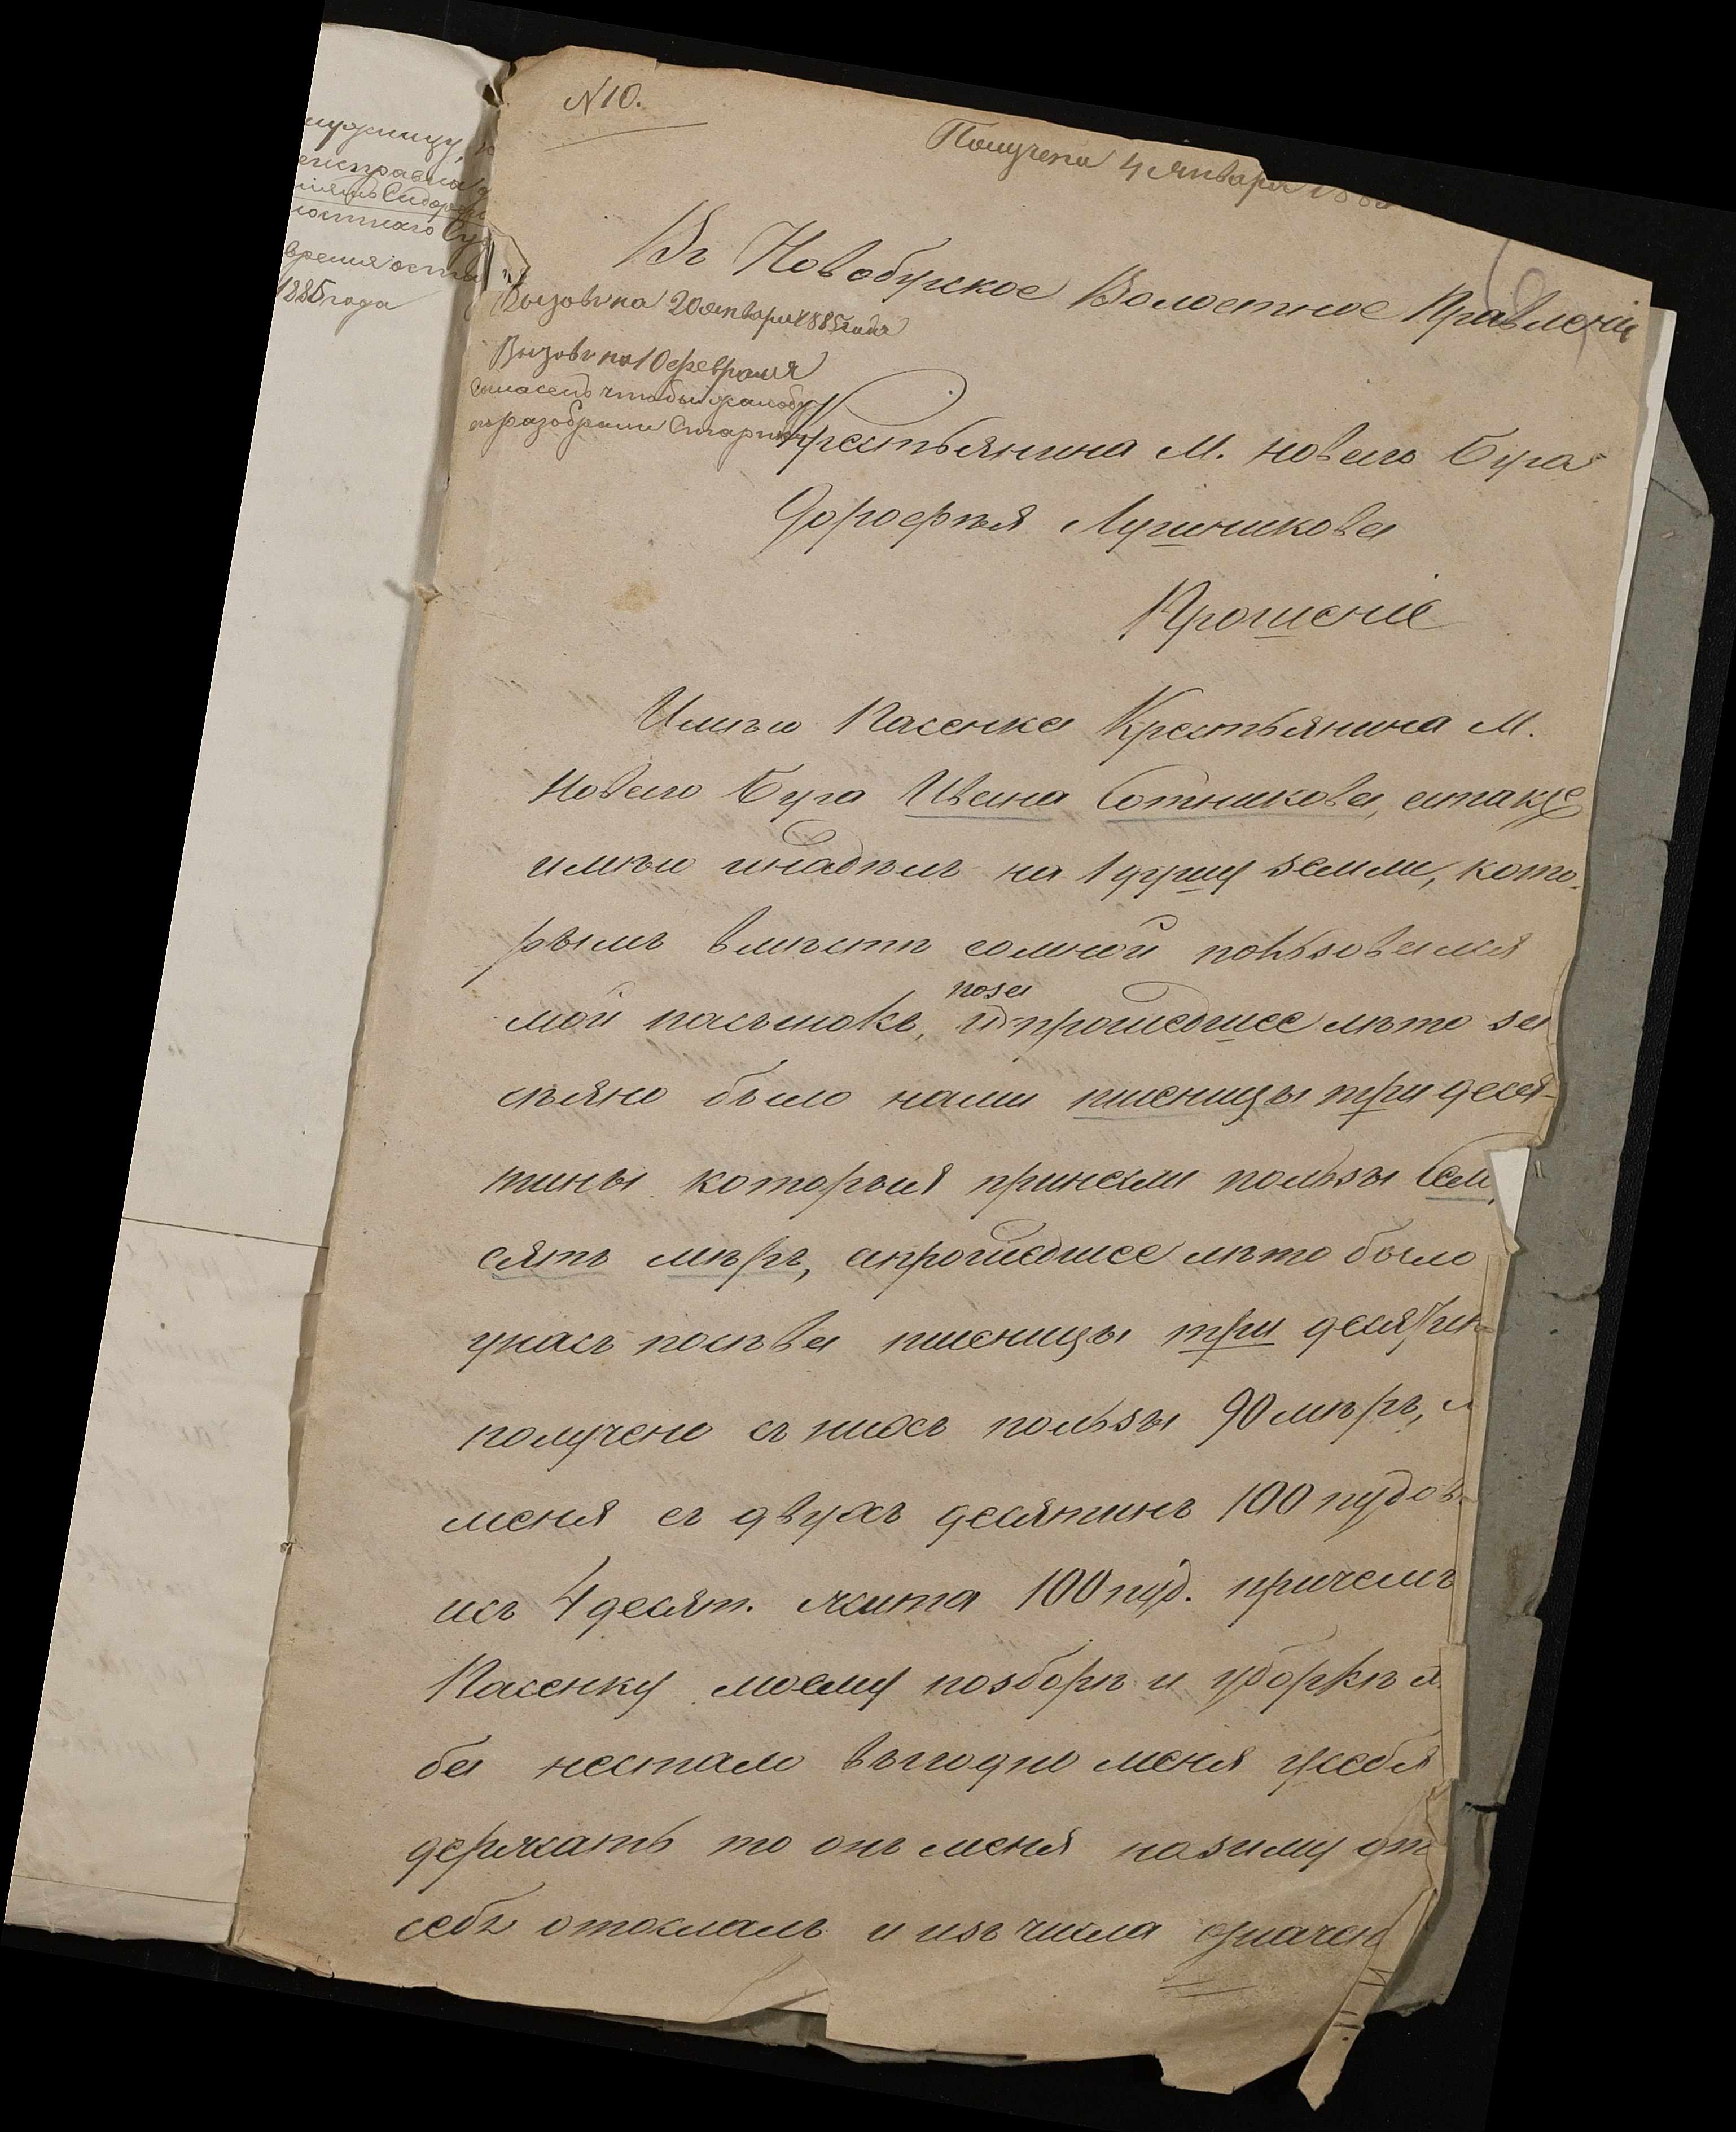 N 10.
Получена 4 января 188
Въ Новобугское Волостное Правленіе
Вызовъ на 20 января 1885 года
Вызовъ на 10 февраля
Согласенъ чтобы жалобу
разобрали Старики
Крестьянина М. Новаго Буга
Дорофѣя Лучникова
Прошеніе
Имѣю Пасенка Крестьянина М.
Новаго Буга Ивана Сотникова, атакже
имѣю инадѣлъ на 1 душу земли, кото-
рымъ вмѣстѣ сомной пользовался
мой пасынокъ,
поза
прошедшее лѣто за
сѣяно было нами пшеницы три деся-
тины которыя принесли пользы Семь
сятъ мѣръ, апрошедшее лѣто было
унасъ посѣва пшеницы три десятин
получено съ нихъ пользы 90 мѣръ,
меня съ двухъ десятинъ 100 пудовъ
исъ 4 десят. жита 100 пуд. причемъ
Пасенку моему позборѣ и уборкѣ
ба нестало выгодно меня усебя
держать то онъ меня назиму от
себѣ отослалъ и изъ числа означен
исправна
Сидор
лостнаго Су
время
1885 года